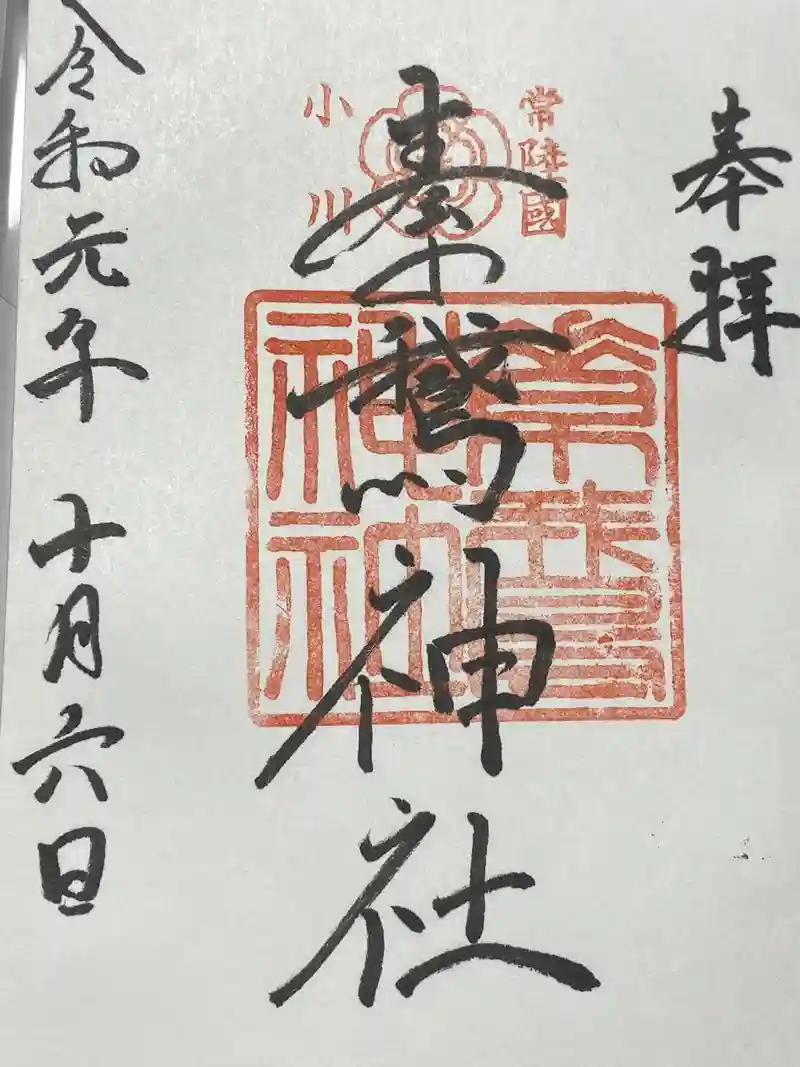 奉拝
常陸國
小川
素鵞神社
素鵞
神社
令和元年 十月六日